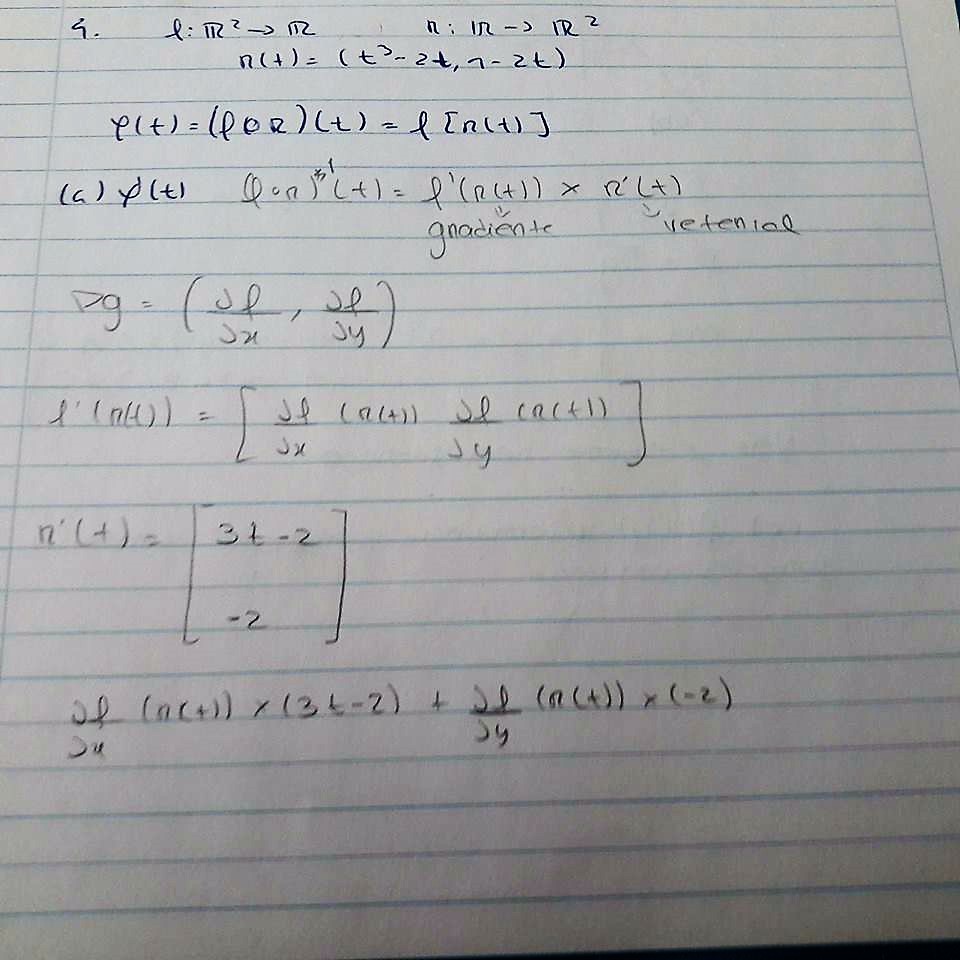 4. f: ℝ² → ℝ r: ℝ → ℝ²
r(t) = (t³ - 2t, 1 - 2t)
φ(t) = (f o r)(t) = f [r(t)]
(a) φ'(t) (f∘r)'(t) = f'(r(t)) × r'(t)
gradiente vetorial
∇g = (∂f/∂x , ∂f/∂y)
f'(r(t)) = [∂f/∂x (r(t)) ∂f/∂y (r(t))]
r'(t) = [3t - 2
-2]
∂f/∂x (r(t)) × (3t - 2) + ∂f/∂y (r(t)) × (-2)